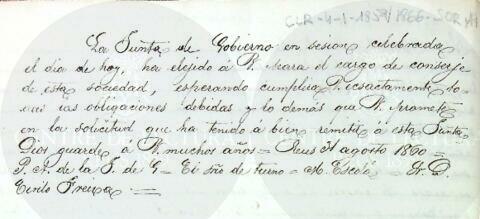 CLR-4-1-1859/1866-SOR
La Junta de Gobierno en sesion celebrada
el dia de hoy, ha elejido á V. para el cargo de conserje
de esta sociedad, esperando cumplirá V. ecsactamente to-
das las obligaciones debidas y lo demás que V. promete
en la solicitud que ha tenido á bien remitir á esta Junta
Dios guarde á V. muchos años = Reus 31 agosto 1860 =
P. A. de la J. de G = El Srio de turno = M. Escolá = Sr. D.
Cirilo Freixa. =